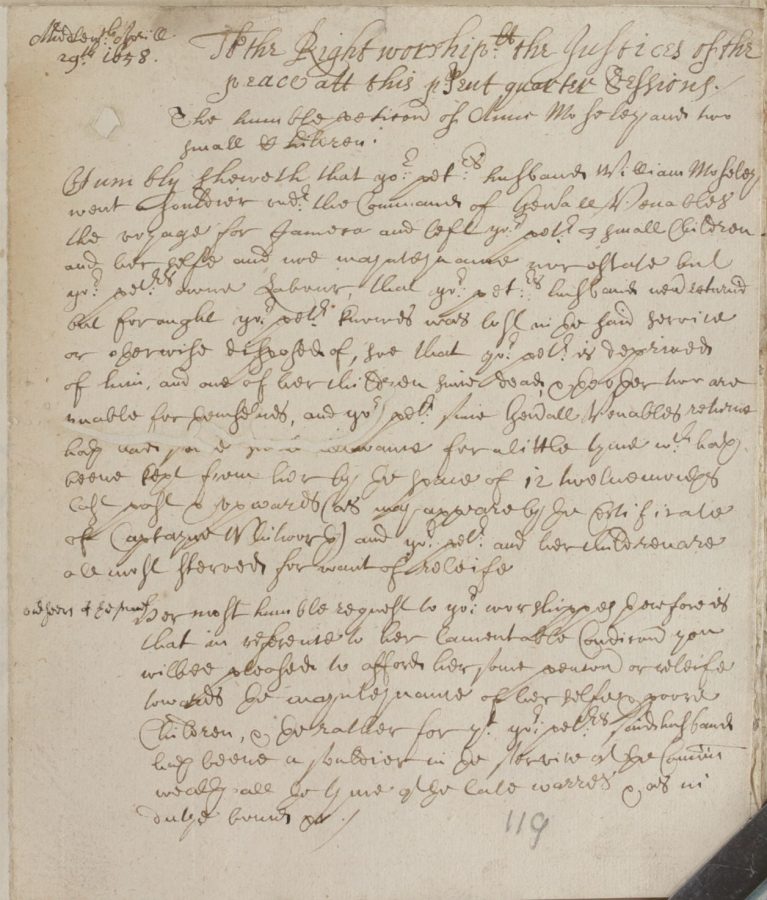 Aprill
29th 1658.
To the Right worshipll the Justices of the
peace att this pr'sent quarter Sessions./
The humble peticion of Anne Moseley and two
small Children:
Humbly sheweth that yor petrs husband William Moseley
went Souldier undr the Command of Genall Venables
the voyage for Jameca and left yor petr 3 small Children
and her selfe and noe maynteynance nor estate but
yor petrs owne Labour, that yor petrs husband nev'r returnd
but for ought yor petr knowes was lost in the said service
or otherwise disposed of, soe that yor petr is deprived
of him, and one of her Children since dead, & the other two are
unable for themselves, and yor petr since Genall Venables returne
hath for a little tyme wch hath
beene kept from her by the space of 12 twelvemonthes
last past & upwards (as may appeare by the Certificate
of Captayne Whitworth) and yor petr and her Children are
allmost sterved for want of releife
Her most humble request to yor worshippes therefore is
that in reference to her lamentable Condicion you
wilbee pleased to afford her some pencion or releife
towards the maynteynance of her selfe & poore
Children, & the rather for yt yor petrs said husband
hath beene a souldier in the service of the Comon
wealth all the tyme of the late warres & as in
dutye bound &c ./
119